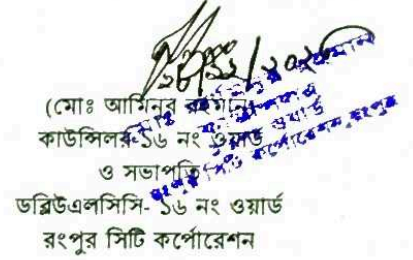 (মোঃ আমিনুর রহমান)
কাউন্সিলর-১৬ নং ওয়ার্ড
ও সভাপতি
ডব্লিউএলসিসি- ১৬ নং ওয়ার্ড
রংপুর সিটি কর্পোরেশন